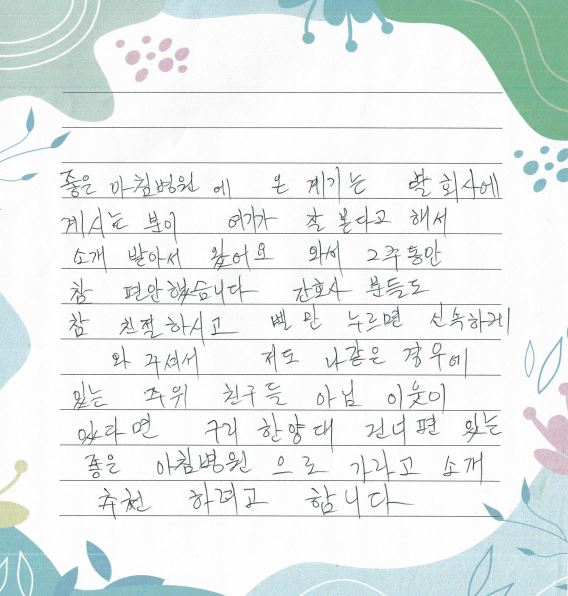 좋은 아침병원 에 온 계기는 딸 회사에
계시는 분이 여기가 잘 본다고 해서
소개 받아서 왔어요 와서 2주동안
참 편안했습니다 간호사 분들도
참 친절하시고 벨 만 누르면 신속하게
와 주셔서 저도 나같은 경우에
있는 주위 친구들 아님 이웃이
있다면 구리 한양대 건너편 있는
좋은 아침병원 으로 가라고 소개
추천 하려고 합니다